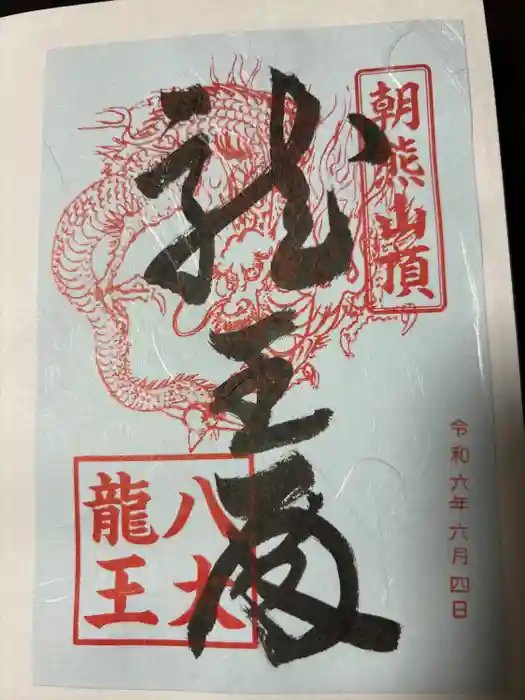 朝熊山頂
龍王殿
八大
龍王
令和六年六月四日